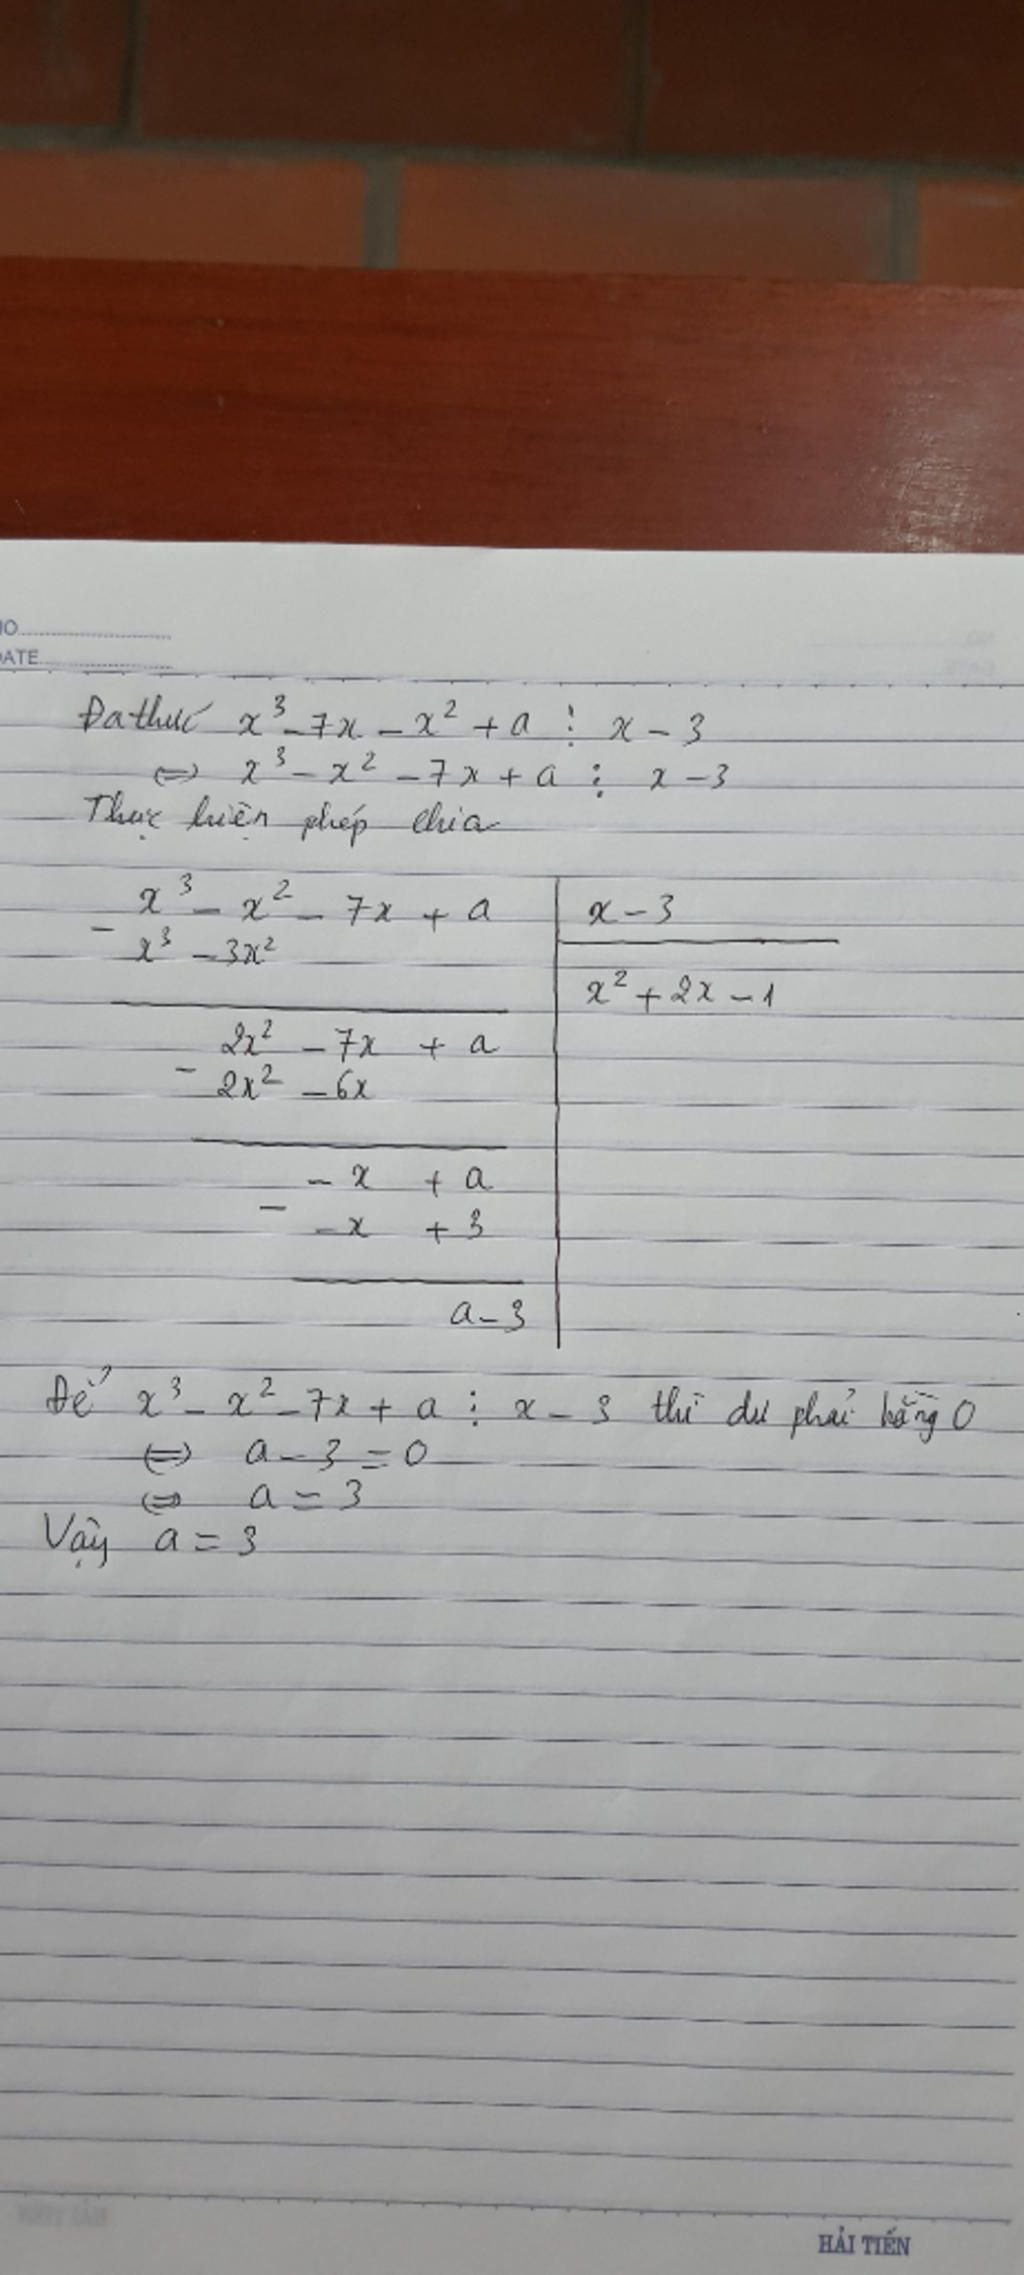 NO
DATE
Đa thức x³ - 7x - x² + a ⋮ x - 3
⇔ x³ - x² - 7x + a ⋮ x - 3
Thực hiện phép chia
x³ - x² - 7x + a | x - 3
- x³ - 3x²
x² + 2x - 1
2x² - 7x + a
- 2x² - 6x
- x + a
- - x + 3
a - 3
Để x³ - x² - 7x + a ⋮ x - 3 thì dư phải bằng 0
⇔ a - 3 = 0
⇔ a = 3
Vậy a = 3
HẢI TIẾN